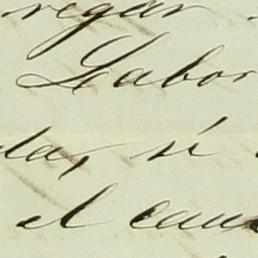 regar
Labor
las, si
el cau